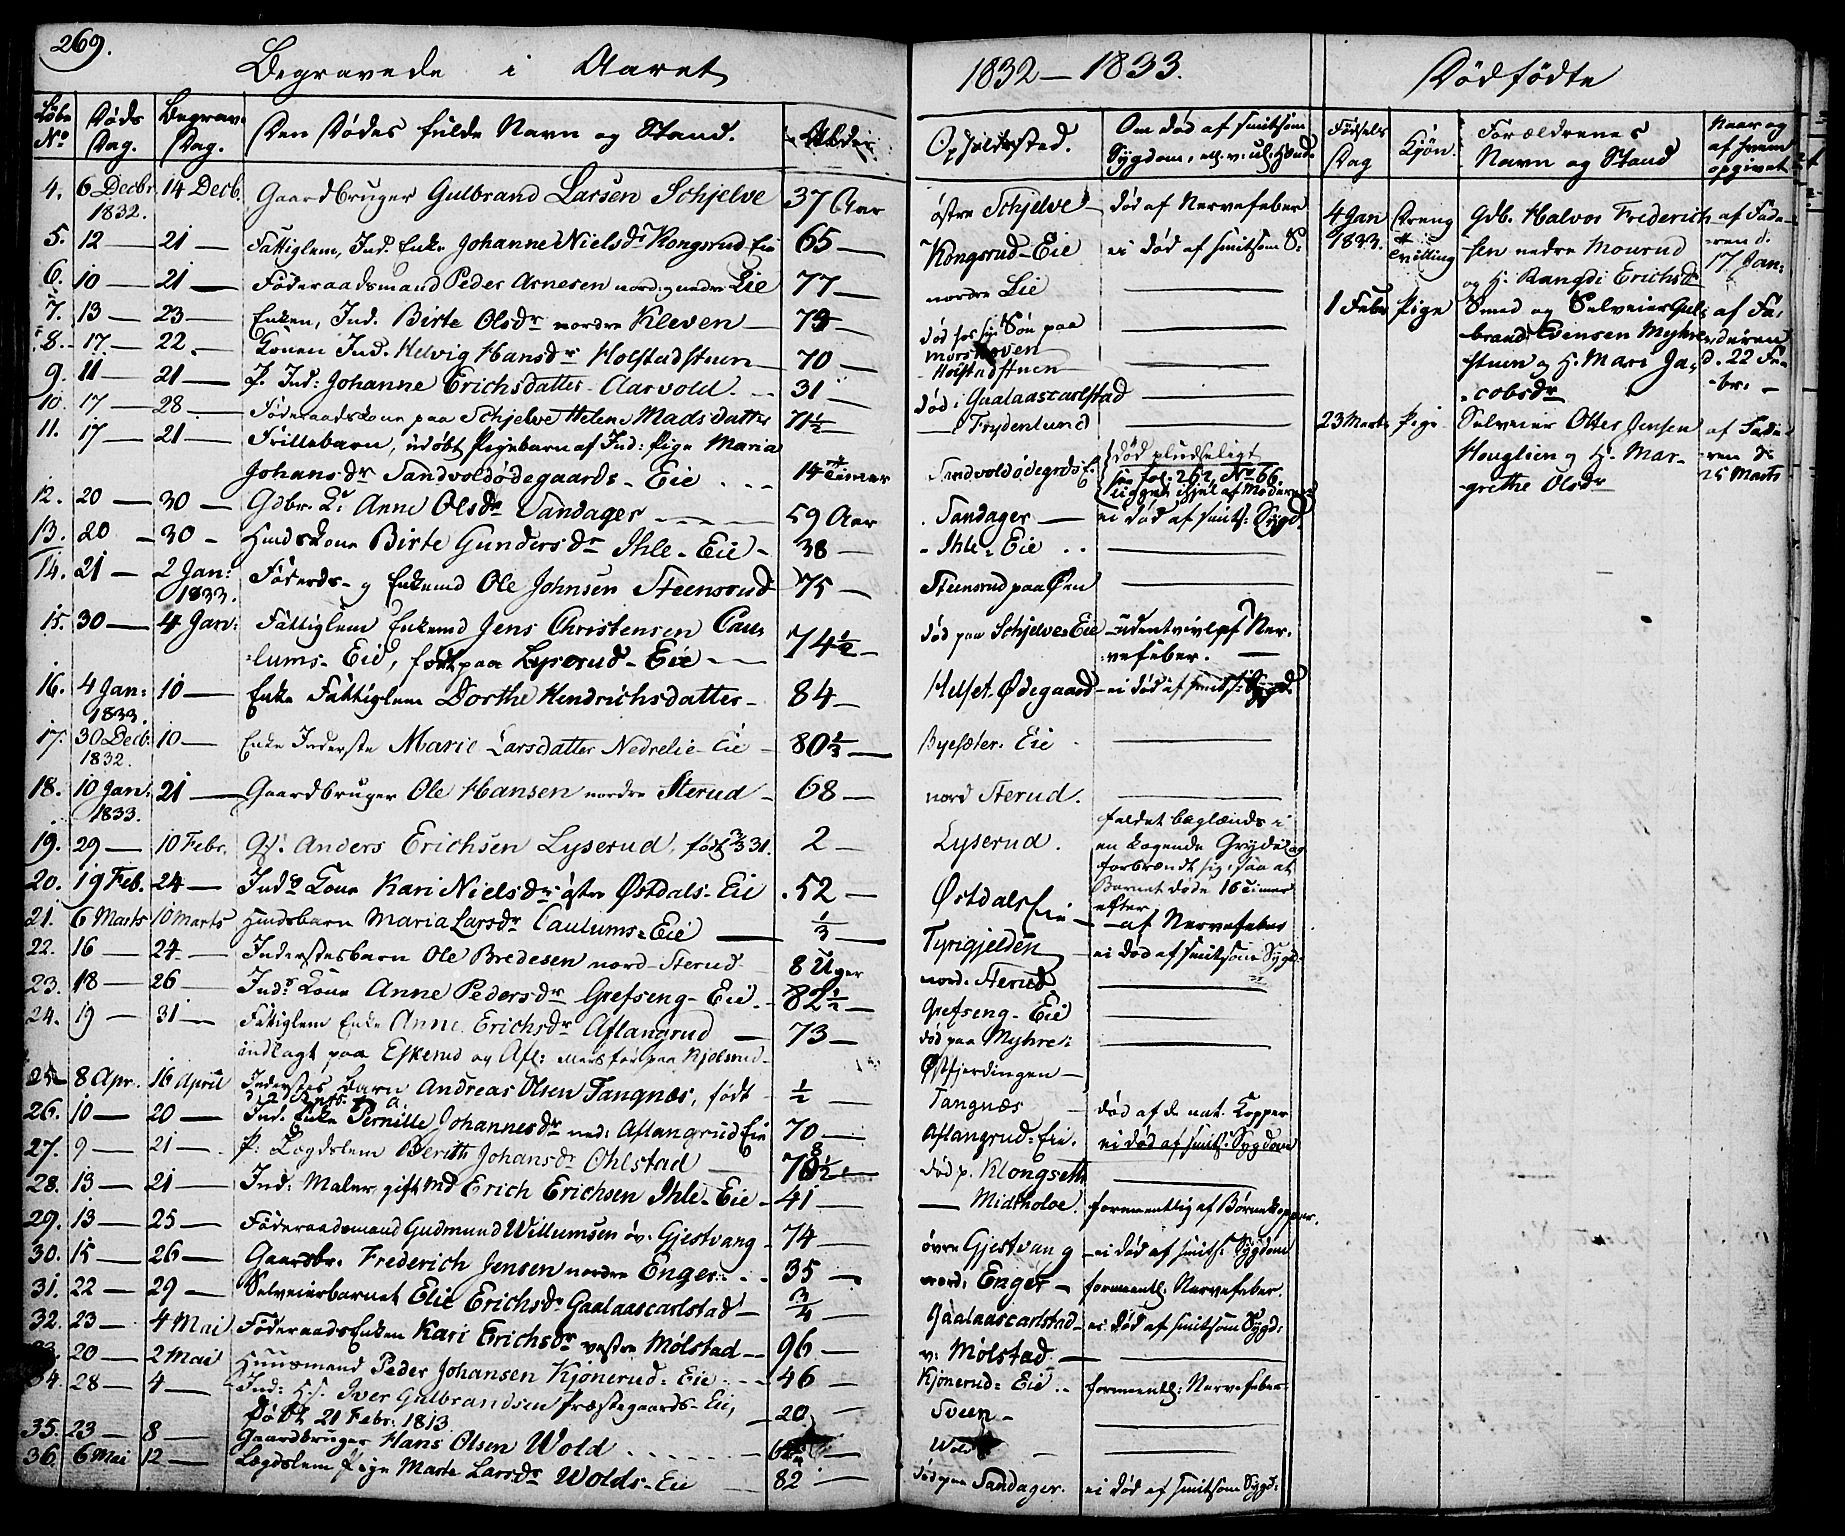 269.
Begravede i Aaret
1832 – 1833.
Dødfødte
Løbe No
Døds Dag.
Begrav. Dag.
Den Dødes fulde Navn og Stand.
Alder
Opholdssted.
Om død af smitsom Sygdom,
Fødsels Dag
Kjøn.
Forældrenes Navn og Stand
Naar og af hvem opgivet
4. 6 Decbr 1832. 14 Decb. Gaardbruger Gulbrand Larsen Schjelve 37 Aar østre Schjelve død af Nervefeber
5. 12 — 21 — Fattiglem, Ind. Enke Johanne Nielsdr Kongsrud Eie 65 — Kongsrud-Eie ei død af smitsom S:
6. 10 — 21 — Føderaadsmand Peder Arnesen nordre Lie 77 — nordre Lie —
7. 13 — 23 — Enken, Ind. Birte Olsdr nordre Kleven — 73 — død hos sin Søn paa —
8. 17 — 22. Konen Ind. Helvig Hansdr Holstadstuen 70 — Holstadstuen —
9. 11 — 21 — Ind: Johanne Erichsdatter Aarvold 31 død i Gaalaascarlstad —
10. 17 — 28 — Føderaadskone paa Schjelve Helene Madsdatter 71½ — Frydenlund —
11. 17 — 21 — Frillebarn, udøbt Pigebarn af Ind: Pige Maria
Johansdr Sandvoldødegaards-Eie 14 Timer Sandvoldødegrds E. død pludseligt
see fol. 262, No 66.
ligget ihjel af Moderen
12. 20 — 30 — Gdbr. K. Anne Olsdr Sandager 59 Aar Sandager — ei død af smits: Sygd.
13. 20 — 30 — Huusdkone Birte Gundersdr Ihle-Eie 38 — Ihle-Eie —
14. 21 — 2 Jan: 1833. Føderds- og Enkemd Ole Johnsen Steensrud 75 — Steensrud paa Øen —
15. 30 — 4 Jan: Fattiglem Enkemd Jens Christensen Cau-
lums-Eie, født paa Lyserud-Eie 74½ død paa Schjelve Eie udentvivl af Ner-
vefeber. —
16. 4 Jan: 1833. 10 — Enke Fattiglem Dorthe Hendrichsdatter 84 — Helset Ødegaard ei død af smits: Sygd.
17. 30 Decb. 1832. 10 — Enke Inderste Marie Larsdatter Nedrelie-Eie 80⅓ — Byesæter-Eie —
18. 10 Jan. 1833. 21 — Gaardbruger Ole Hansen nordre Sterud 68 — nord Sterud. —
19. 29 — 10 Febr. Anders Erichsen Lyserud, født 31. 2 — Lyserud. faldet baglænds i
en kogende Gryde og
forbrændt sig, saa at
Barnet døde 16 Timer
efter
20. 19 Feb. 24 — Inds Kone Kari Nielsdr østre Østdals-Eie 52 — Østdals Eie — af Nervefeber
21. 6 Marts 10 Marts Huusdsbarn Maria Larsdr Caulums-Eie ⅓ — Tyrigjelden ei død af smitsom Sygd:
22. 16 24 — Inderstesbarn Ole Bredesen nord-Sterud 8 Uger nord: Sterud —
23. 18 — 26 — Inds Kone Anne Pedersdr Grefseng-Eie 82½ — Grefseng-Eie —
24. 19 — 31 — Fattiglem Enke Anne Erichsdr Aflangrud 73 — død paa Myhre i
indlagt paa Eskerud Østfjerdingen —
25. 8 Apr. 16 April Inderstes Barn Andreas Olsen Tangnæs, født ½ — Tangnæs død af de nat. Kopper
26. 10 — 20 — Ind. Enke Pernille Johannesdr ned: Aflangrud Eie 70 — Aflangrud-Eie. ei død af smits. Sygdom
27. 9 — 21 — P. Lægdslem Berithe Johansdr Ohlstad 78½ død p. Klongseth —
28. 13 — 21 — Ind: Maler gift md Erich Erichsen Ihle-Eie 41 — Midtholve. formeentlig af Børnekopper.
29. 13 — 25 — Føderaadsmand Gudmund Willumsen øv. Gjestvang 74 — øvre Gjestvang ei død af smits: Sygdom
30. 15 — 26 — Gaardbr. Frederich Jensen nordre Enger 35 — nord: Enger — formeentl: Nervefeber.
31. 22 — 29 — Selveierbarnet Elie Erichsdr Gaalaascarlstad ¾ — Gaalaascarlstad ei død af smitsom Sygd:
32. 23 — 4 Mai Føderaads Enken Kari Erichsdr vestre Mølstad 96 — v: Mølstad —
20 — 2 Mai Huusmand Peder Johansen Kjønerud-Eie 46 — Kjønerud-Eie formeentl: Nervefeber
34. 28 — 4 — Ind: Iver Gulbrandsen Præstegaards-Eie,
Døbt 21 Febr. 1813 20 Sveen —
35. 23 — 8 — Gaardbruger Hans Olsen Wold Wold —
36. 6 Mai 12 — Lægdslem Pige Marte Larsdr Wolds-Eie 82 — død paa Sandager. ei død af smitsom Sygd:
4 Jan 1833. Dreng Tvilling Gdb. Halvor Frederich-
sen nedre Mourud
og H. Rangdi Erichsdr af Fade-
ren d.
17 Jan:
1 Febr Pige Smed og Selveier Gul-
brand Evensen Myhre-
stuen og H. Mari Ja-
cobsdr af Fa-
deren
d. 22 Fe-
br: —
23 Marts Pige Selveier Otter Jensen
Houglien og H. Mar-
grethe Olsdr af Fade-
ren d.
25 Marts